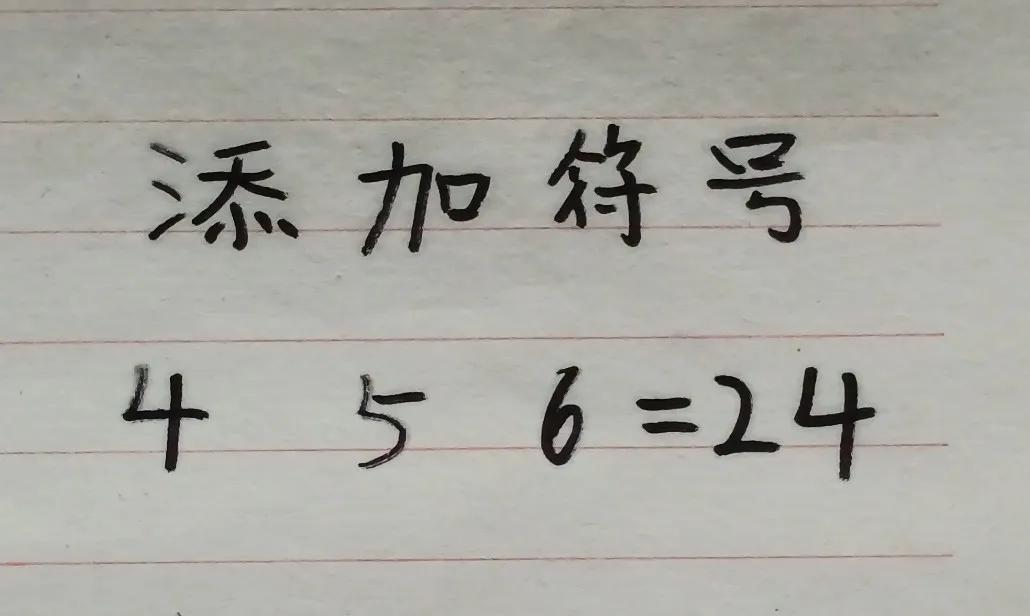 添加符号
4 5 6=24